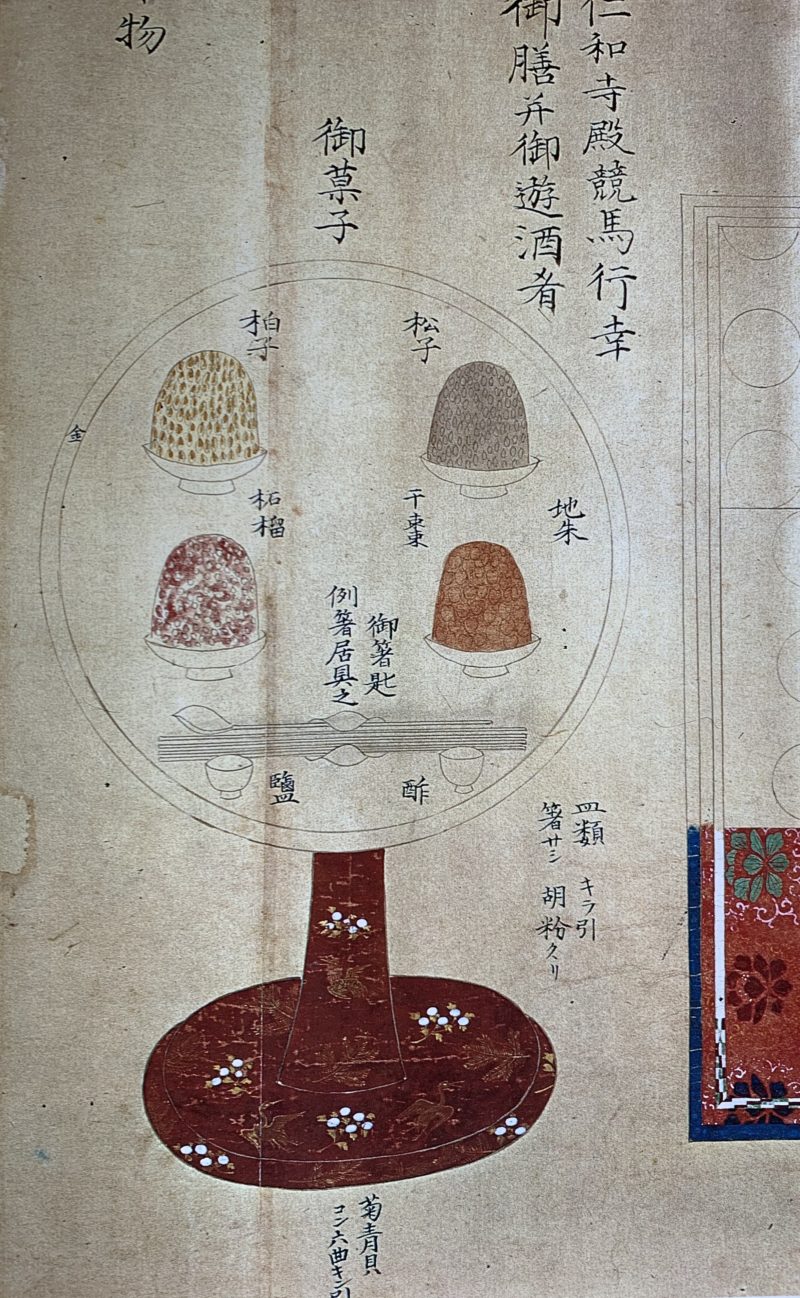 仁和寺殿競馬行幸
御膳并御遊酒肴
御菓子
松子
柏子
地朱
干棗
柘榴
金
御箸匙
例箸居具之
酢
鹽
皿類 キラ引
箸サシ 胡粉クリ
菊青貝
コン六曲キン引
物